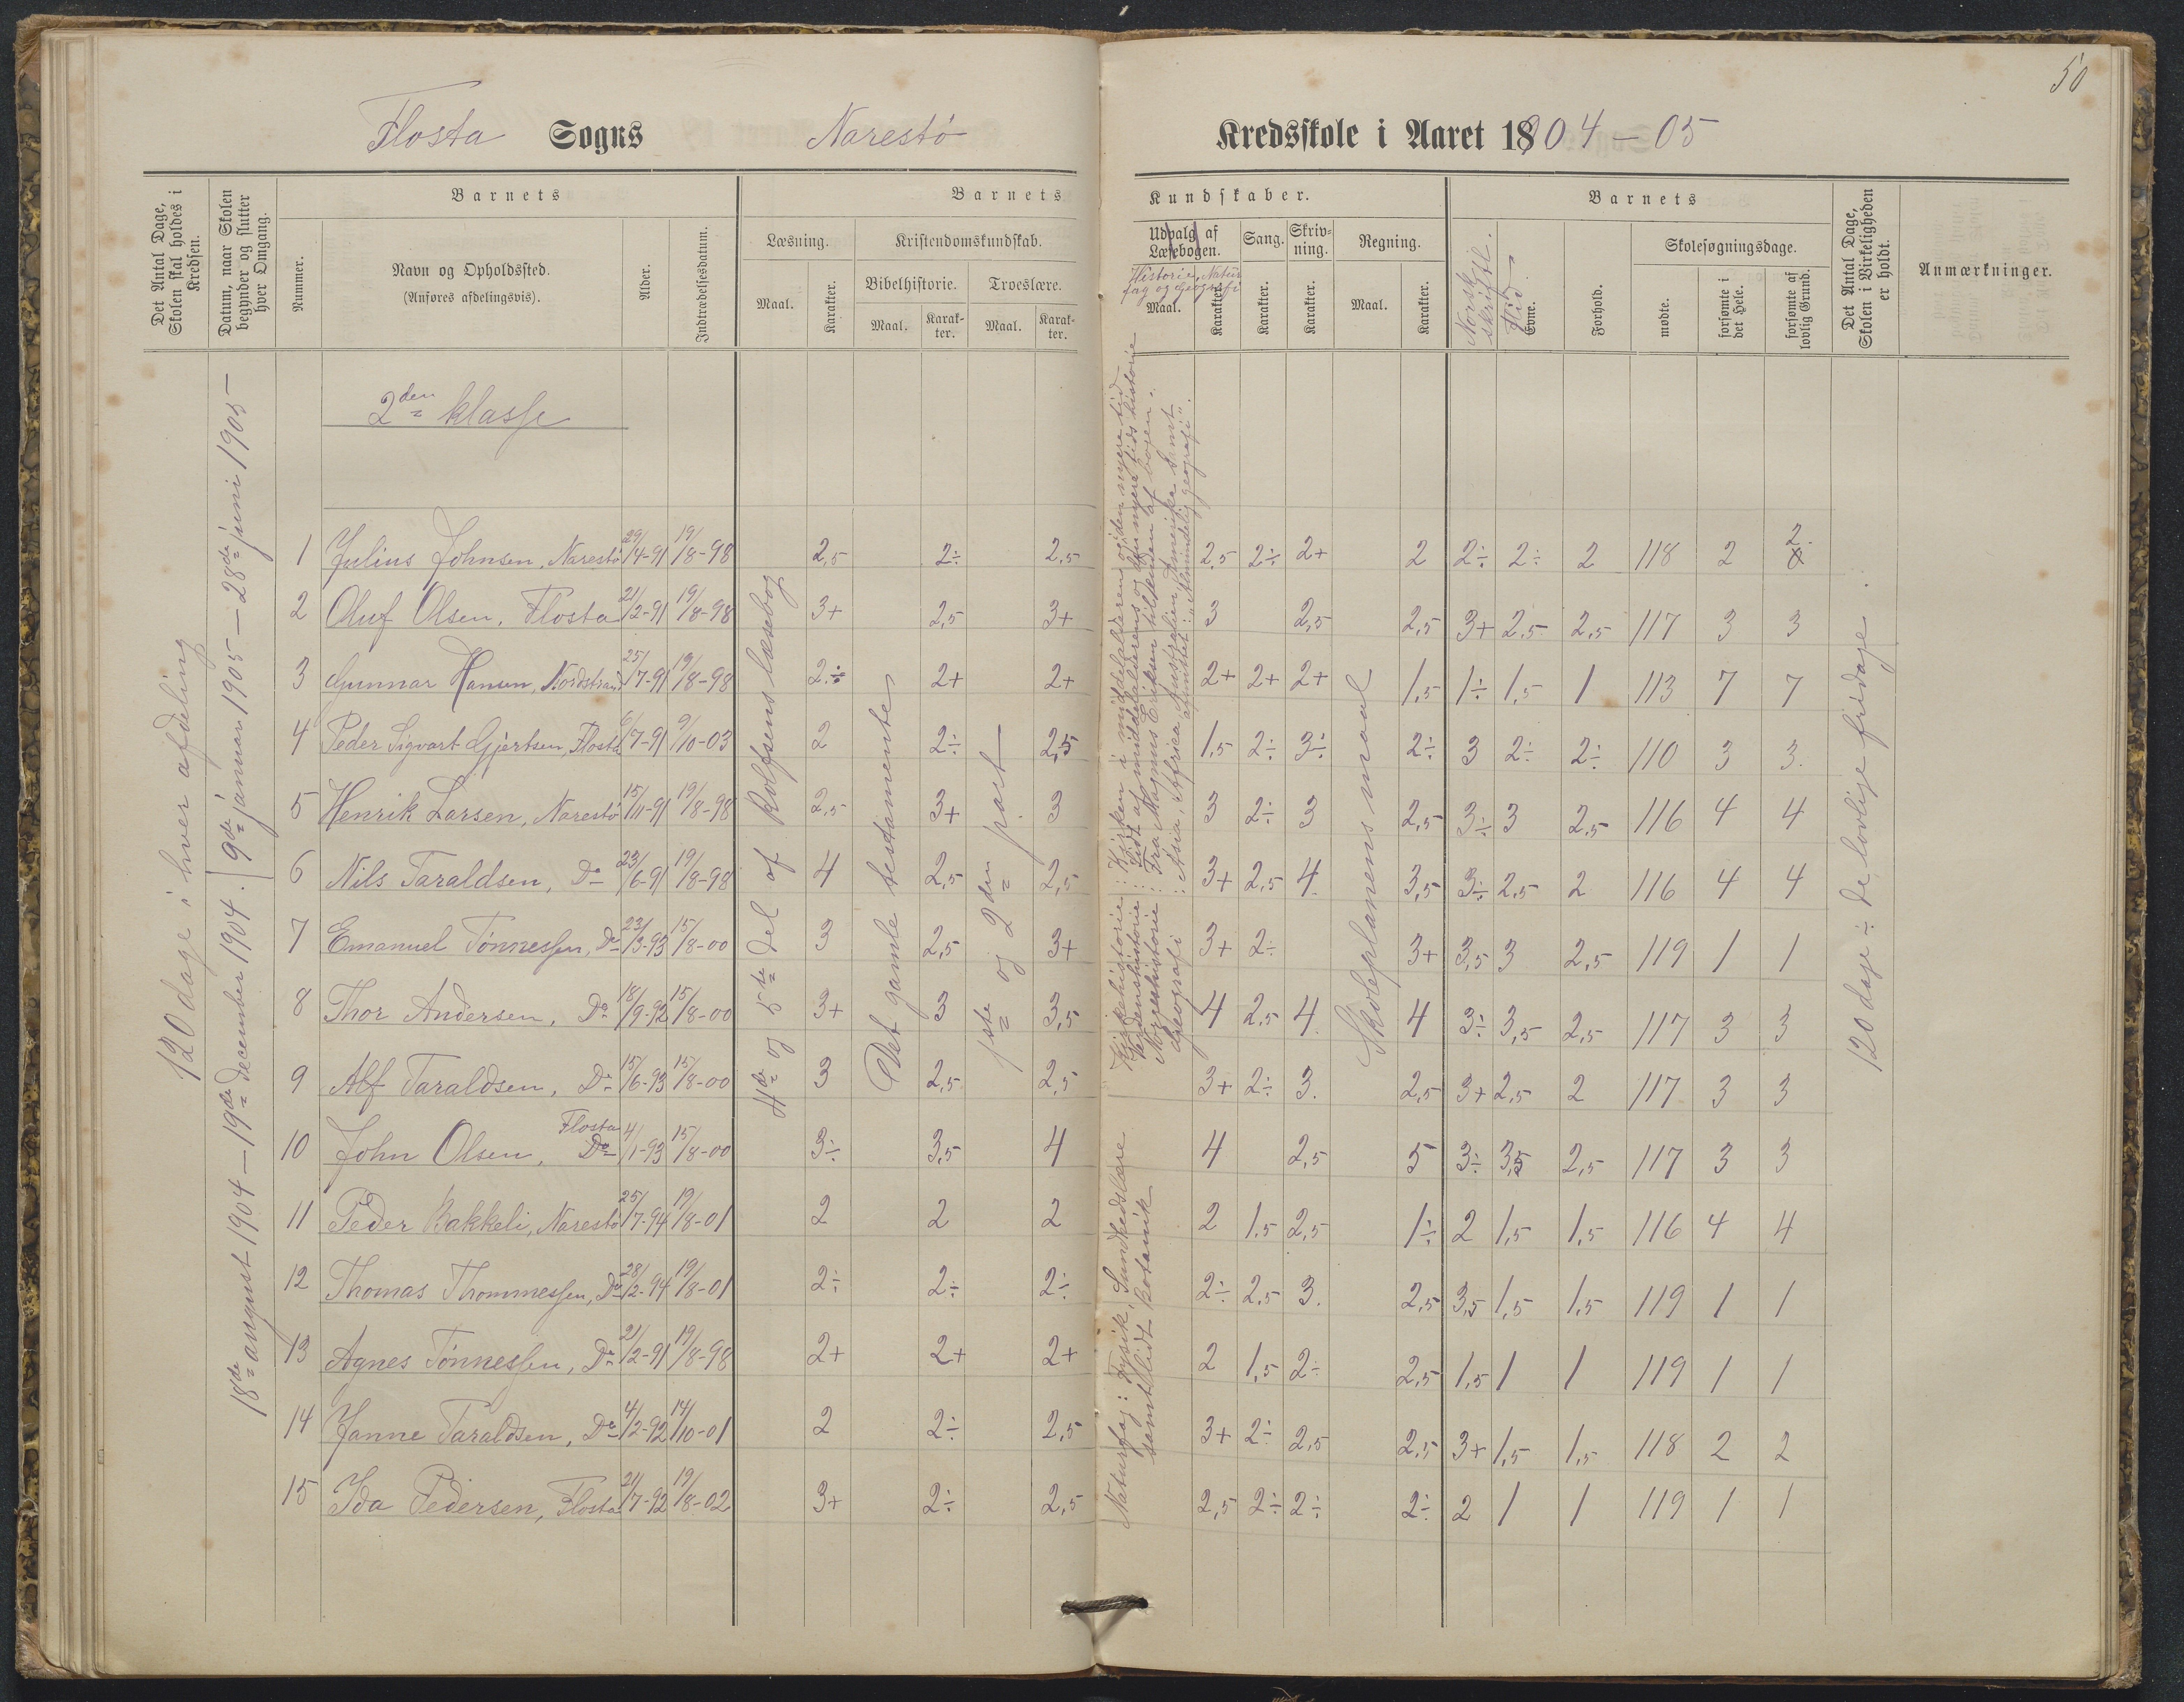 50
Flosta Sogns Narestö Kredsskole i Aaret 1904-05
Det Antal Dage, Skolen skal holdes i Kredsen.
Datum, naar Skolen begynder og slutter hver Omgang.
Nummer.
Barnets
Navn og Opholdssted.
(Anføres afdelingsvis).
Alder.
Indtrædelsesdatum.
Barnets Kundskaber.
Læsning.
Maal. Karakter.
Kristendomskundskab.
Bibelhistorie. Troeslære.
Maal. Karakter. Maal. Karakter.
Udvalg af Læsebogen.
Historie, Naturfag og Geografi
Maal. Karakter.
Sang. Karakter.
Skrivning. Karakter.
Regning.
Maal. Karakter.
Barnets
Norsk skriftl.
Flid
Evne.
Forhold.
Skolesøgningsdage.
mødte. forsømte i det Hele. forsømte af lovlig Grund.
Det Antal Dage, Skolen i Virkeligheden er holdt.
Anmærkninger.
120 dage i hver afdeling
18de august 1904 - 19de december 1904. | 9de januar 1905 - 28de juni 1905 -
2den klasse
4de og 5te del af Rolfsens læsebog
Det gamle testamente
1ste og 2den part
Kirkehistorie: Kirken i middelalderen og i den nyere tid
Verdenshistorie: Sidst af middelalderens og den nyere tids historie
Norgeshistorie: Fra Magnus Eriksen til enden af bogen.
Geografi: Asia, Afrika, Australien, Amerika samt afsnittet: "Almindelig geografi".
Naturfag: Fysik, Sundhedslære samt lidt Botanik
Skoleplanens maal
120 dage ÷ de lovlige fridage.
1 Julius Johnsen, Narestö 29/4-91 19/8-98 2,5 2÷ 2,5 2,5 2÷ 2+ 2 2÷ 2÷ 2 118 2 2.
2 Oluf Olsen, Flosta 21/2-91 19/8-98 3+ 2,5 3+ 3 2,5 2,5 3+ 2,5 2,5 117 3 3
3 Gunnar Hansen, Nordstrand 25/7-91 19/8-98 2÷ 2+ 2+ 2+ 2+ 2+ 1,5 1÷ 1,5 1 113 7 7
4 Peder Sigvart Gjertsen, Flosta 6/7-91 9/10-03 2 2÷ 2,5 1,5 2÷ 3÷ 2÷ 3 2÷ 2÷ 110 3 3.
5 Henrik Larsen, Narestö 15/11-91 19/8-98 2,5 3+ 3 3 2÷ 3 2,5 3÷ 3 2,5 116 4 4
6 Nils Taraldsen, Do 23/6-91 19/8-98 4 2,5 2,5 3+ 2,5 4. 3,5 3÷ 2,5 2 116 4 4
7 Emanuel Tönnessen, Do 23/3-93 15/8-00 3 2,5 3+ 3+ 2÷ 3+ 3,5 3 2,5 119 1 1
8 Thor Andersen, Do 18/9-92 15/8-00 3+ 3 3,5 4 2,5 4. 4 3÷ 3,5 2,5 117 3 3
9 Alf Taraldsen, Do 15/6-93 15/8-00 3 2,5 2,5 3+ 2÷ 3. 2,5 3+ 2,5 2 117 3 3
10 John Olsen, Flosta 4/1-93 15/8-00 3÷ 3,5 4 4 2,5 5 3÷ 3,5 2,5 117 3 3
11 Peder Bakkeli, Narestö 25/7-94 19/8-01 2 2 2 2 1,5 2,5 1÷ 2 1,5 1,5 116 4 4
12 Thomas Thommessen, Do 28/2-94 19/8-01 2÷ 2÷ 2÷ 2÷ 2,5 3. 2,5 3,5 1,5 1,5 119 1 1
13 Agnes Tönnessen, Do 21/2-91 19/8-98 2+ 2+ 2+ 2 1,5 2÷ 2,5 1,5 1 1 119 1 1
14 Janne Taraldsen, Do 4/2-92 14/10-01 2 2÷ 2,5 3+ 2÷ 2,5 2,5 3+ 1,5 1,5 118 2 2
15 Ida Pedersen, Flosta 21/7-92 19/8-02 3+ 2÷ 2,5 2,5 2÷ 2÷ 2÷ 2 1 1 119 1 1